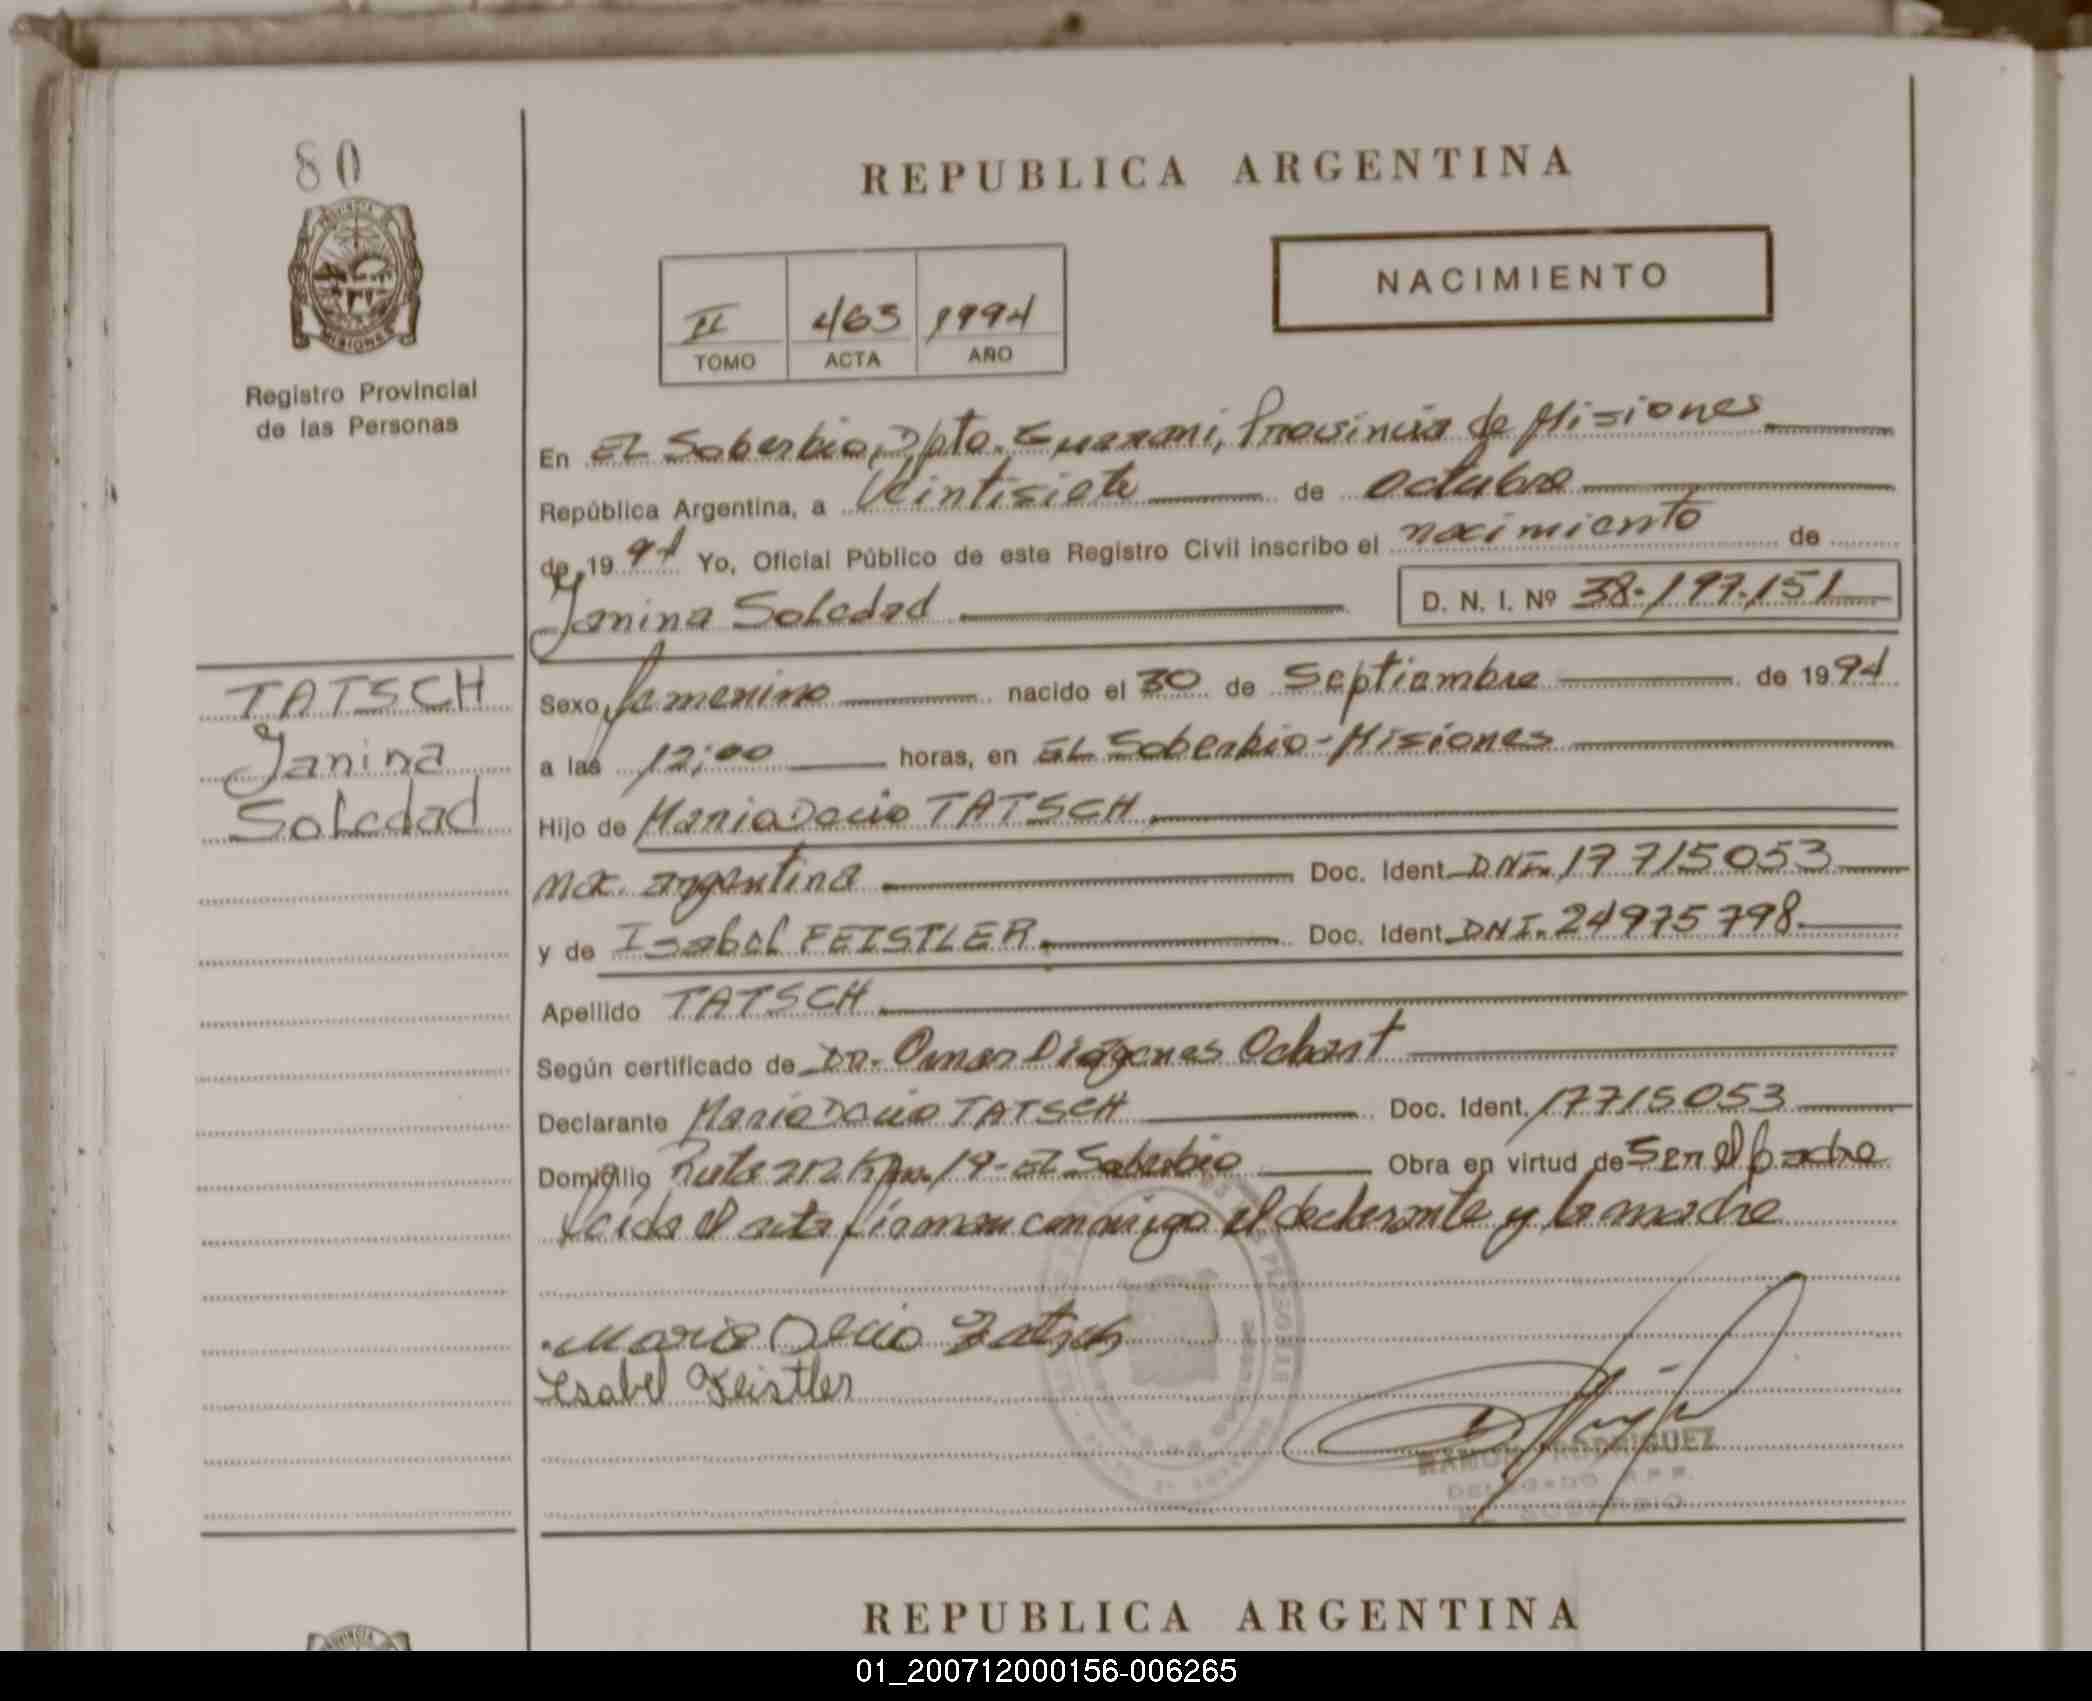 80
REPUBLICA ARGENTINA
NACIMIENTO
II 463 1994
TOMO ACTA AÑO
Registro Provincial
de las Personas
En EL Soberbio, Dpto. Guarani, Provincia de Misiones
República Argentina, a Veintisiete de Octubre
de 19 94 Yo, Oficial Público de este Registro Civil inscribo el nacimiento de
Janina Soledad D. N. I. Nº 38.197.151
TATSCH
Janina
Soledad
Sexo femenino nacido el 30 de Septiembre de 19 94
a las 12:00 horas, en EL Soberbio-Misiones
Hijo de Mario Decio TATSCH
nac. argentina Doc. Ident. DNI. 17 715053
y de Isabel FEISTLER Doc. Ident. DNI. 24975798
Apellido TATSCH
Según certificado de DR. Omar Diógenes
Declarante Mario Decio TATSCH Doc. Ident. 17715053
Domicilio Ruta Km. 19-El Soberbio Obra en virtud de Ser el padre
Leida el acta firman conmigo el declarante y la madre
Mario Decio Tatsch
Isabel Feistler
RAMON RODRIGUEZ
DELEGADO R.P.P.
EL SOBERBIO
REPUBLICA ARGENTINA
01_200712000156-006265